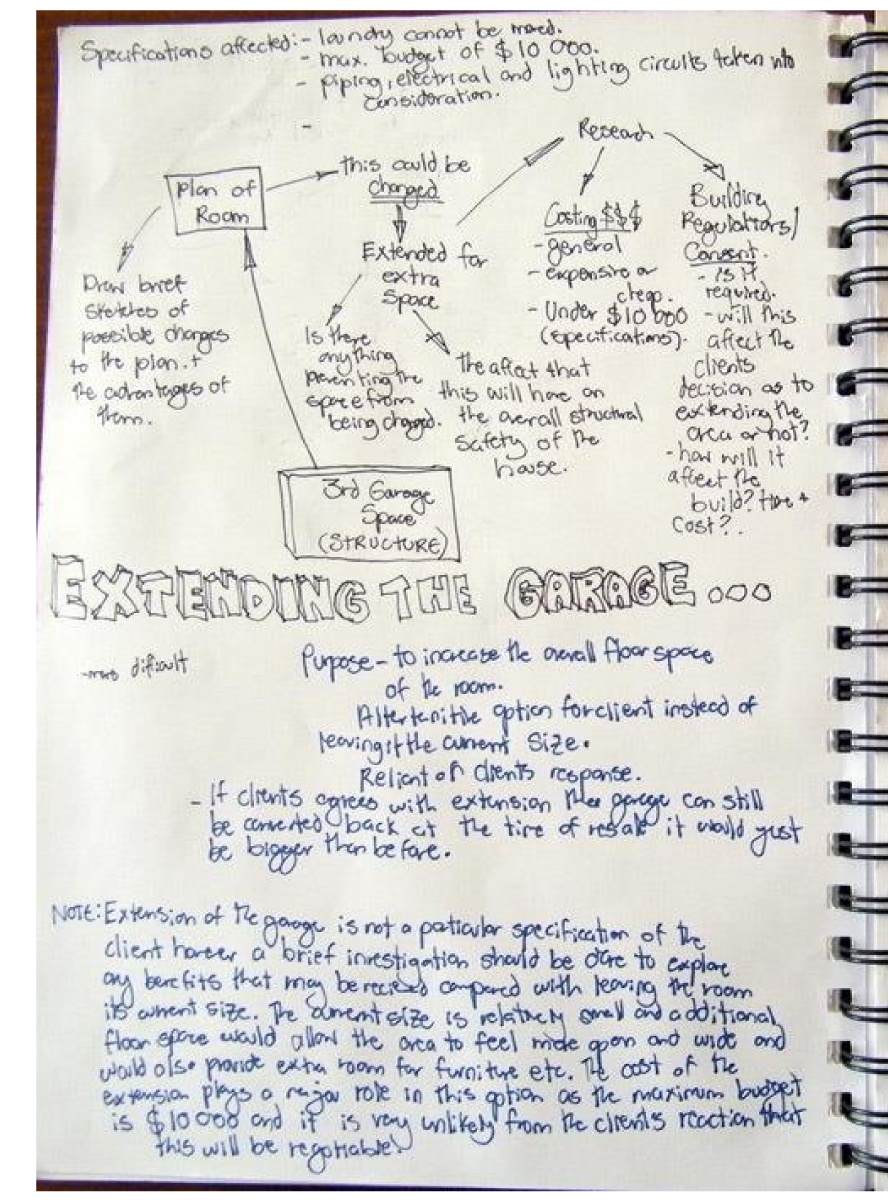 Specifications affected:- laundry cannot be moved.
- max. budget of $10 000.
- piping, electrical and lighting circuits taken into
consideration.
-
Plan of
Room
this could be
changed
Research
Draw brief
sketches of
possible changes
to the plan. +
the advantages of
them.
Extended for
extra
space
Is there
anything
preventing the
space from
being changed.
The affect that
this will have on
the overall structural
safety of the
house.
Costing $$$
- general
- expensive or
cheap.
- Under $10 000
(specifications).
Building
Regulations/
Consent.
- is it
required.
- will this
affect the
clients
decision as to
extending the
area or not?
- how will it
affect the
build? time +
cost?.
3rd Garage
Space
(STRUCTURE)
EXTENDING THE GARAGE...
- more dificult
Purpose - to increase the overall floor space
of the room.
option for client instead of
leaving it the current size.
Reliant of clients response.
- If clients agrees with extension the garage can still
be converted back at the time of resale it would just
be bigger than before.
NOTE: Extension of the garage is not a paticular specification of the
client however a brief investigation should be done to explore
any benefits that may be compared with leaving the room
its current size. The current size is relatively small and additional
floor space would allow the area to feel more open and wide and
would also provide extra room for furniture etc. The cost of the
extension plays a major role in this option as the maximum budget
is $10 000 and it is very unlikely from the clients reaction that
this will be negotiable!